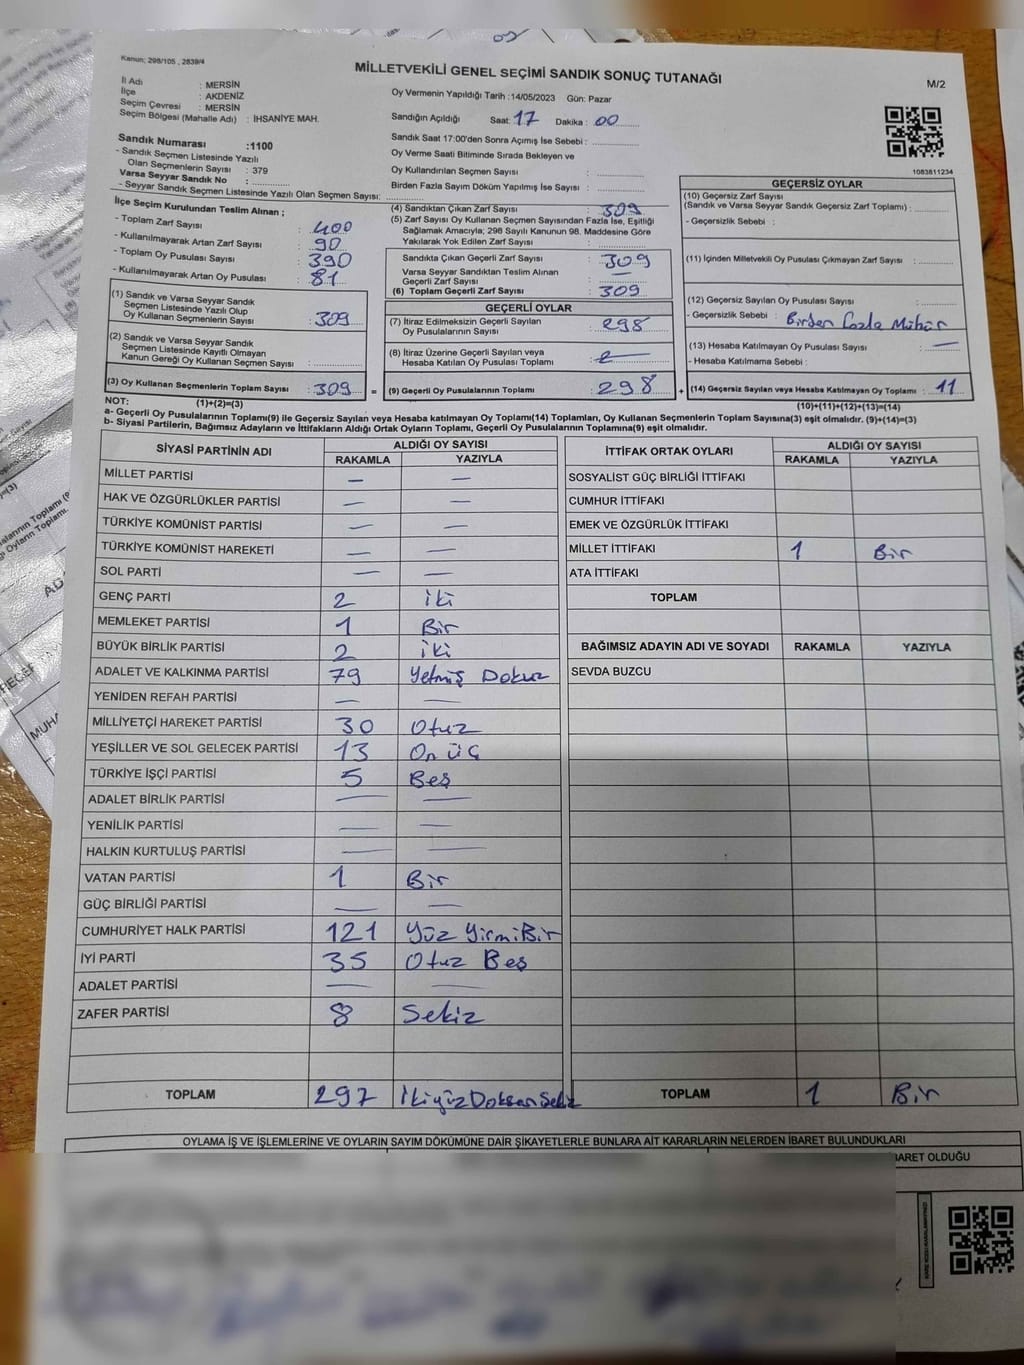 Kanun; 298/105 , 2839/4
MİLLETVEKİLİ GENEL SEÇİMİ SANDIK SONUÇ TUTANAĞI
M/2
İl Adı : MERSİN
İlçe : AKDENİZ
Seçim Çevresi : MERSİN
Seçim Bölgesi (Mahalle Adı) : İHSANİYE MAH.
Oy Vermenin Yapıldığı Tarih :14/05/2023 Gün: Pazar
Sandığın Açıldığı Saat: 17 Dakika : 00
Sandık Saat 17:00'den Sonra Açımış İse Sebebi :
Oy Verme Saati Bitiminde Sırada Bekleyen ve
Oy Kullandırılan Seçmen Sayısı :
Birden Fazla Sayım Döküm Yapılmış İse Sayısı :
1083811234
Sandık Numarası :1100
- Sandık Seçmen Listesinde Yazılı
Olan Seçmenlerin Sayısı : 379
Varsa Seyyar Sandık No :
- Seyyar Sandık Seçmen Listesinde Yazılı Olan Seçmen Sayısı:
İlçe Seçim Kurulundan Teslim Alınan ;
- Toplam Zarf Sayısı : 400
- Kullanılmayarak Artan Zarf Sayısı : 90
- Toplam Oy Pusulası : 390
- Kullanılmayarak Artan Oy Pusulası : 81
(1) Sandık ve Varsa Seyyar Sandık
Seçmen Listesinde Yazılı Olup
Oy Kullanan Seçmenlerin Sayısı : 309
(2) Sandık ve Varsa Seyyar Sandık
Seçmen Listesinde Kayıtlı Olmayan
Kanun Gereği Oy Kullanan Seçmen Sayısı :
(3) Oy Kullanan Seçmenlerin Toplam Sayısı : 309 =
(4) Sandıktan Çıkan Zarf Sayısı : 309
(5) Zarf Sayısı Oy Kullanan Seçmen Sayısından Fazla İse, Eşitliği
Sağlamak Amacıyla; 298 Sayılı Kanunun 98. Maddesine Göre
Yakılarak Yok Edilen Zarf Sayısı :
Sandıkta Çıkan Geçerli Zarf Sayısı : 309
Varsa Seyyar Sandıktan Teslim Alınan
Geçerli Zarf Sayısı : —
(6) Toplam Geçerli Zarf Sayısı : 309
GEÇERLİ OYLAR
(7) İtiraz Edilmeksizin Geçerli Sayılan
Oy Pusulalarının Sayısı : 298
(8) İtiraz Üzerine Geçerli Sayılan veya
Hesaba Katılan Oy Pusulası Toplamı :
(9) Geçerli Oy Pusulalarının Toplamı : 298 +
GEÇERSİZ OYLAR
(10) Geçersiz Zarf Sayısı
(Sandık ve Varsa Seyyar Sandık Geçersiz Zarf Toplamı) :
- Geçersizlik Sebebi :
(11) İçinden Milletvekili Oy Pusulası Çıkmayan Zarf Sayısı :
(12) Geçersiz Sayılan Oy Pusulası Sayısı :
- Geçersizlik Sebebi : Birden Fazla Mühür
(13) Hesaba Katılmayan Oy Pusulası Sayısı : —
- Hesaba Katılmama Sebebi :
(14) Geçersiz Sayılan veya Hesaba Katılmayan Oy Toplamı : 11
NOT: (1)+(2)=(3) (10)+(11)+(12)+(13)=(14)
a- Geçerli Oy Pusulalarının Toplamı(9) ile Geçersiz Sayılan veya Hesaba katılmayan Oy Toplamı(14) Toplamları, Oy Kullanan Seçmenlerin Toplam Sayısına(3) eşit olmalıdır. (9)+(14)=(3)
b- Siyasi Partilerin, Bağımsız Adayların ve İttifakların Aldığı Ortak Oyların Toplamı, Geçerli Oy Pusulalarının Toplamına(9) eşit olmalıdır.
SİYASİ PARTİNİN ADI ALDIĞI OY SAYISI
RAKAMLA YAZIYLA
MİLLET PARTİSİ — —
HAK VE ÖZGÜRLÜKLER PARTİSİ — —
TÜRKİYE KOMÜNİST PARTİSİ — —
TÜRKİYE KOMÜNİST HAREKETİ — —
SOL PARTİ — —
GENÇ PARTİ 2 iki
MEMLEKET PARTİSİ 1 Bir
BÜYÜK BİRLİK PARTİSİ 2 iki
ADALET VE KALKINMA PARTİSİ 79 Yetmiş Dokuz
YENİDEN REFAH PARTİSİ — —
MİLLİYETÇİ HAREKET PARTİSİ 30 Otuz
YEŞİLLER VE SOL GELECEK PARTİSİ 13 On üç
TÜRKİYE İŞÇİ PARTİSİ 5 Beş
ADALET BİRLİK PARTİSİ — —
YENİLİK PARTİSİ — —
HALKIN KURTULUŞ PARTİSİ — —
VATAN PARTİSİ 1 Bir
GÜÇ BİRLİĞİ PARTİSİ — —
CUMHURİYET HALK PARTİSİ 121 Yüz Yirmi Bir
İYİ PARTİ 35 Otuz Beş
ADALET PARTİSİ — —
ZAFER PARTİSİ 8 Sekiz
TOPLAM 297 İkiyüz Doksan Sekiz
İTTİFAK ORTAK OYLARI ALDIĞI OY SAYISI
RAKAMLA YAZIYLA
SOSYALİST GÜÇ BİRLİĞİ İTTİFAKI
CUMHUR İTTİFAKI
EMEK VE ÖZGÜRLÜK İTTİFAKI
MİLLET İTTİFAKI 1 Bir
ATA İTTİFAKI
TOPLAM
BAĞIMSIZ ADAYIN ADI VE SOYADI RAKAMLA YAZIYLA
SEVDA BUZCU
TOPLAM 1 Bir
OYLAMA İŞ VE İŞLEMLERİNE VE OYLARIN SAYIM DÖKÜMÜNE DAİR ŞİKAYETLERLE BUNLARA AİT KARARLARIN NELERDEN İBARET BULUNDUKLARI
BARET OLDUĞU